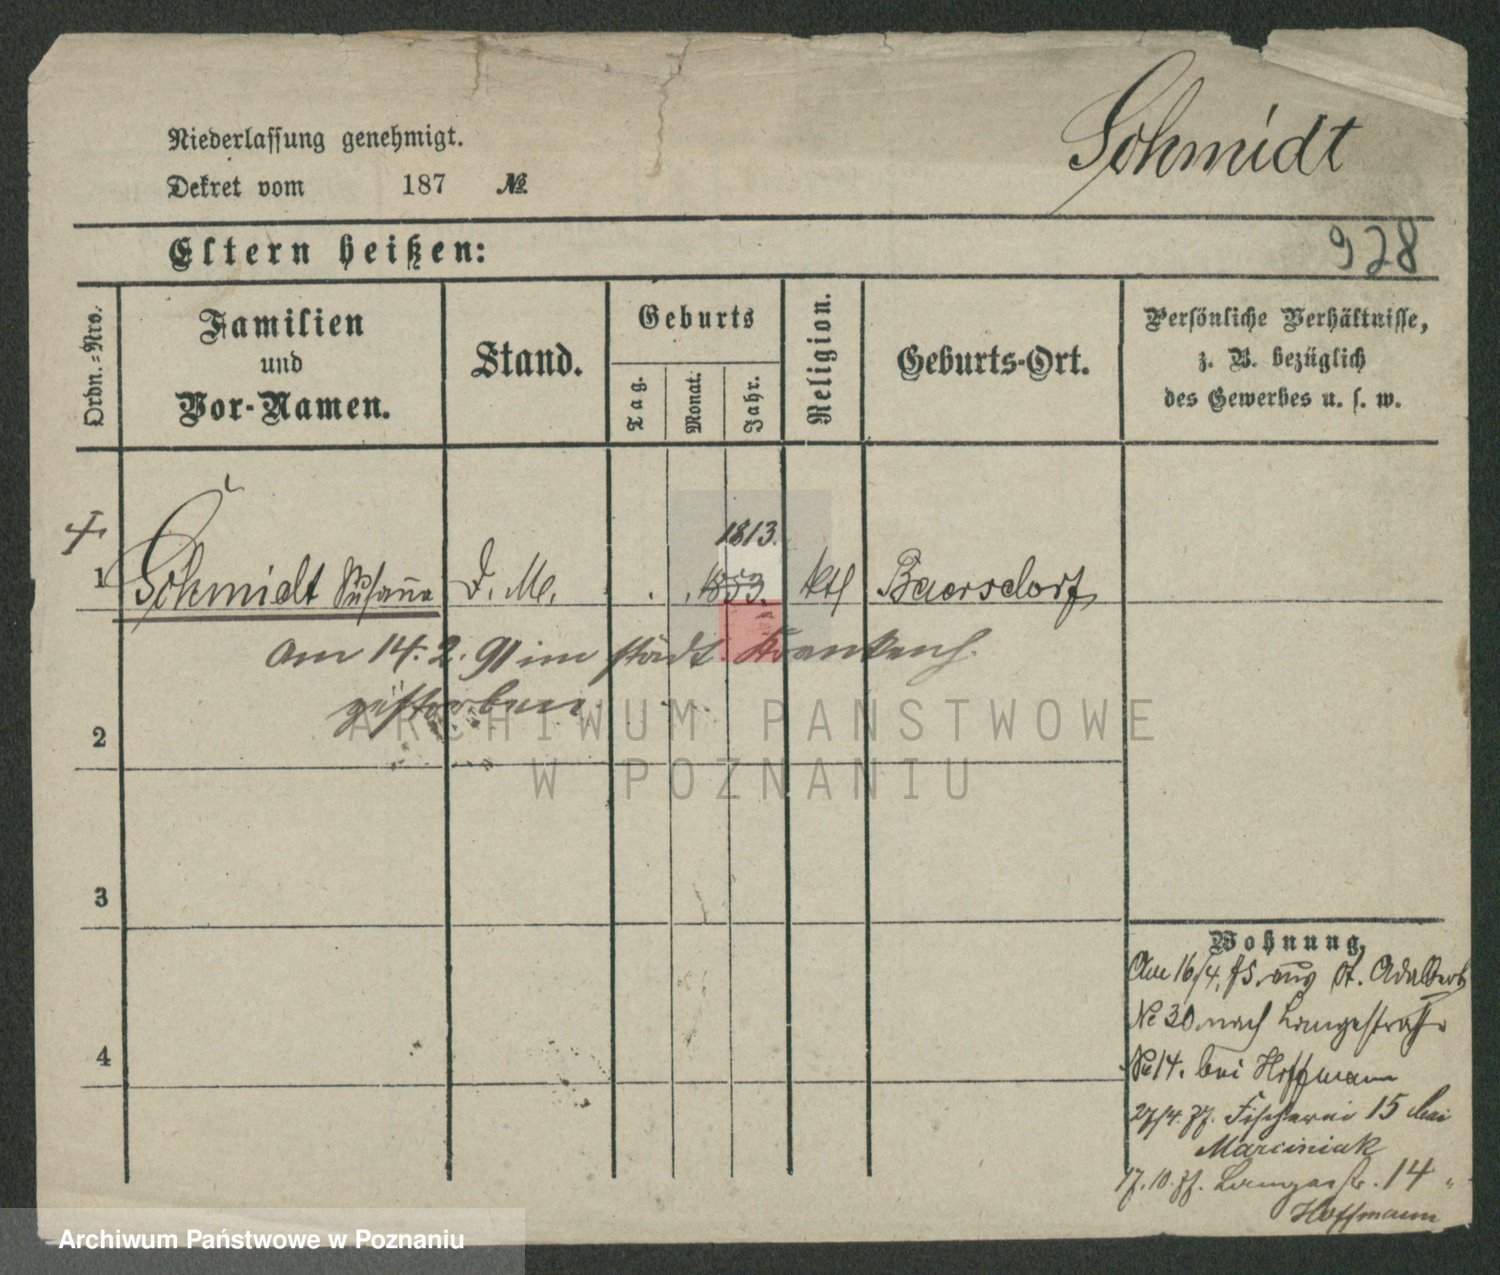 Schmidt
Niederlassung genehmigt.
Dekret vom 187 №
Eltern heißen:
928
Ordn.-Nro.
Familien
und
Vor-Namen.
Stand.
Geburts
Tag.
Monat.
Jahr.
Religion.
Geburts-Ort.
Persönliche Verhältnisse,
z. B. bezüglich
des Gewerbes u. s. w.
1813.
1 Schmidt Susanna D. M. 1853. ktl Baersdorf
am 14.2.91 im städt. Krankenh.
gestorben
2
3
4
ARCHIWUM PAŃSTWOWE
W POZNANIU
Wohnung.
Am 16/4. 75 aus St. Adalbert
№ 30 nach Langestraße
№ 14. bei Hoffmann
27/4. 77. Fischerei 15 bei
Marciniak
17.10.77. Langestr. 14 "
Hoffmann
Archiwum Państwowe w Poznaniu